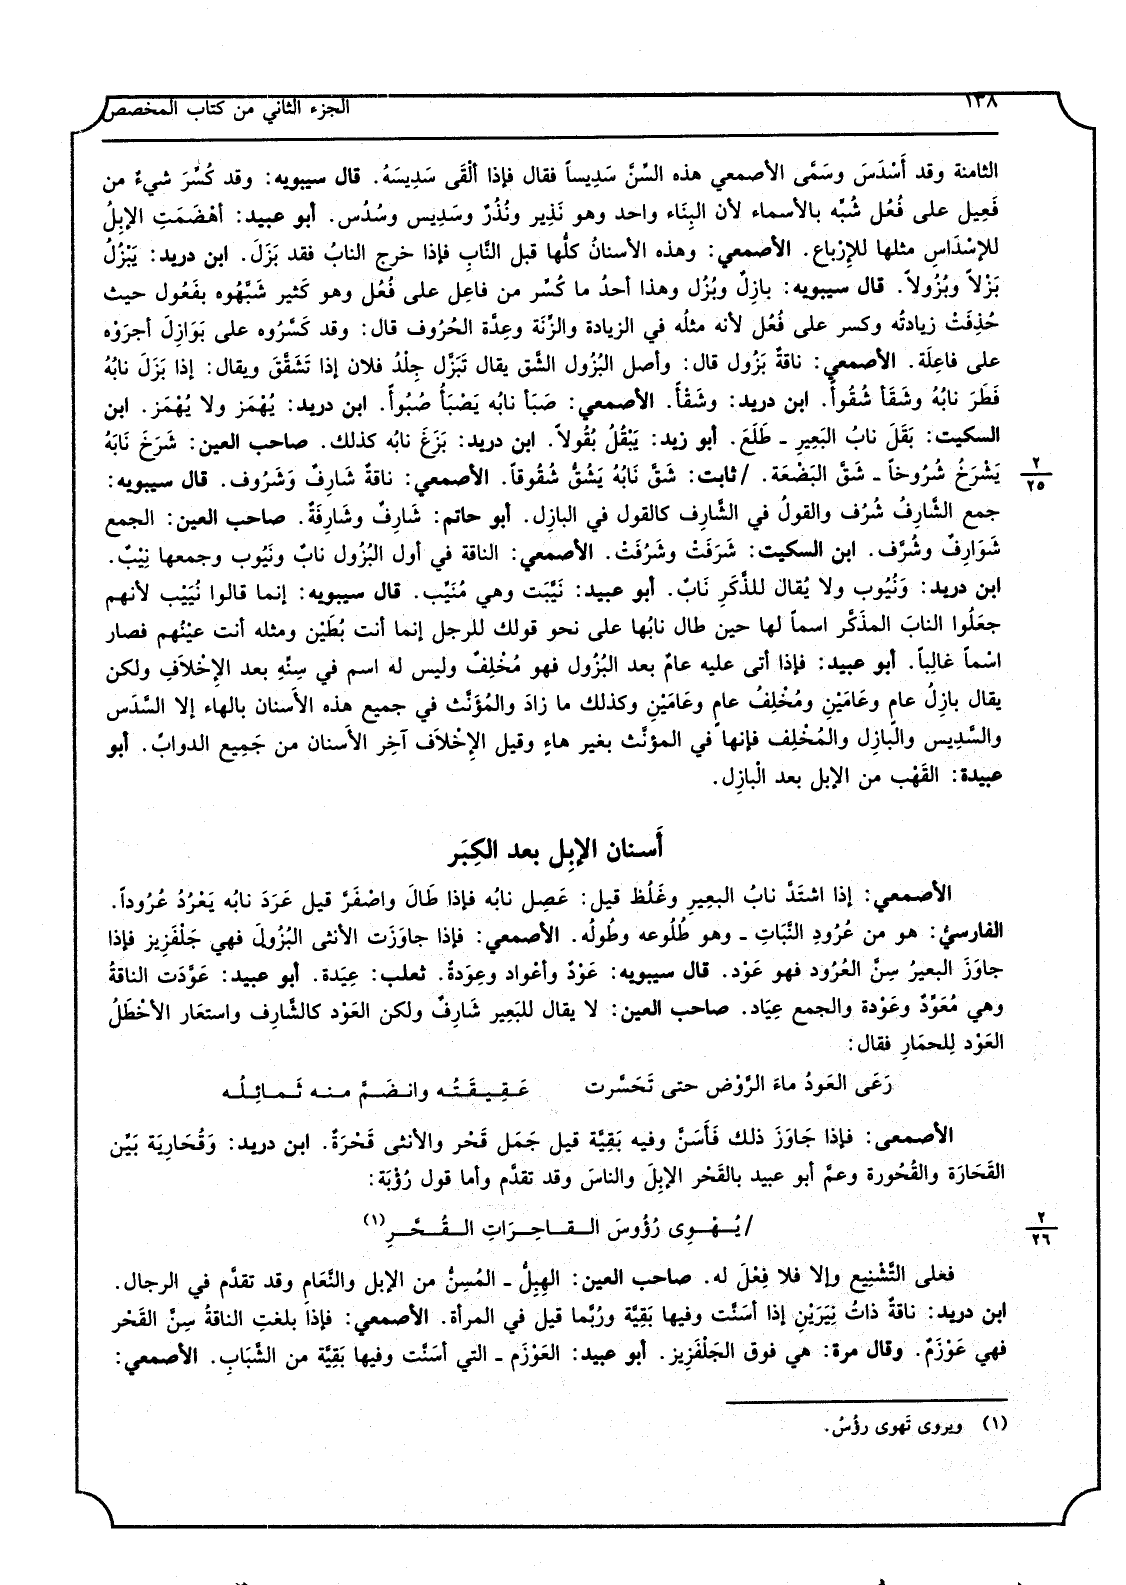 ١٣٨
الجزء الثاني من كتاب المخصص
الثامنة وقد أَسْدَسَ وسَمَّى الأصمعي هذه السِّنَّ سَدِيساً فقال فإذا ألْقَى سَدِيسَهُ. قال سيبويه: وقد كُسِّرَ شيءٌ من
فَعِيل على فُعُل شُبِّه بالأسماء لأن البِنَاء واحد وهو نَذِير ونُذُرٌ وسَدِيس وسُدُس. أبو عبيد: أهْضَمَتِ الإبِلُ
للإسْدَاسِ مثلها للإِرْباع. الأصمعي: وهذه الأسنانُ كلُّها قبل النَّابِ فإذا خرج النابُ فقد بَزَلَ. ابن دريد: يَبْزُلُ
بَزْلاً وبُزُولاً. قال سيبويه: بازِلٌ وبُزُل وهذا أحدُ ما كُسِّر من فاعِل على فُعُل وهو كَثير شَبَّهُوه بفَعُول حيث
حُذِفَتْ زيادتُه وكسر على فُعُل لأنه مثلُه في الزيادة والزِّنَة وعِدَّة الحُرُوف قال: وقد كَسَّرُوه على بَوَازِلَ أجرَوْه
على فاعِلَة. الأصمعي: ناقةٌ بَزُول قال: وأصل البُزُول الشَّق يقال تَبَزَّل جِلْدُ فلان إذا تَشَقَّقَ ويقال: إذا بَزَلَ نابُهُ
فَطَرَ نابُهُ وشَقَأ شُقُوأً. ابن دريد: وشَقْأً. الأصمعي: صَبَأ نابُه يَصْبَأُ صُبُوأً. ابن دريد: يُهْمَز ولا يُهْمَز. ابن
السكيت: بَقَلَ نابُ البَعِيرِ ـ طَلَعَ. أبو زيد: يَبْقُلُ بُقُولاً. ابن دريد: بَزَغَ نابُه كذلك. صاحب العين: شَرَخَ نَابَهُ
يَشْرَخُ شُرُوخاً ـ شَقَّ البَضْعَة. / ثابت: شَقَّ نَابُهُ يَشُقُّ شُقُوقاً. الأصمعي: ناقةٌ شَارِفٌ وَشَرُوف. قال سيبويه:
٢
٢٥
جمع الشَّارِفُ شُرُف والقولُ في الشَّارِف كالقول في البازِل. أبو حاتم: شَارِفٌ وشَارِفَةٌ. صاحب العين: الجمع
شَوَارِفٌ وشُرَّف. ابن السكيت: شَرَفَتْ وشَرُفَتْ. الأصمعي: الناقة في أول البُزُول نابٌ ونَيُوب وجمعها نِيْبٌ.
ابن دريد: وَنُيُوب ولا يُقال للذَّكَرِ نَابٌ. أبو عبيد: نَيَّبَت وهي مُنَيِّب. قال سيبويه: إنما قالوا نُيَيْب لأنهم
جعَلُوا النابَ المذَكَّر اسماً لها حين طال نابُها على نحو قولك للرجل إنما أنت بُطَيْن ومثله أنت عيْنُهم فصار
اسْماً غالِباً. أبو عبيد: فإذا أتى عليه عامٌ بعد البُزُول فهو مُخْلِفٌ وليس له اسم في سِنِّهِ بعد الإِخْلافِ ولكن
يقال بازِلُ عامٍ وعَامَيْنِ ومُخْلِفُ عامٍ وعَامَيْنِ وكذلك ما زادَ والمُؤَنَّث في جميع هذه الأَسنان بالهاء إلا السَّدَس
والسَّدِيس والبَازِل والمُخْلِف فإنها في المؤنَّث بغير هاءٍ وقيل الإِخْلاَف آخِر الأَسنان من جَمِيع الدوابّ. أبو
عبيدة: القَهْب من الإبل بعد الْبازِل.
أَسنان الإبِل بعد الكِبَر
الأصمعي: إذا اشتَدَّ نابُ البعِيرِ وغَلُظ قيل: عَصِل نابُه فإذا طَالَ واصْفَرَّ قيل عَرَدَ نابُه يَعْرُدُ عُرُوداً.
الفارسيُّ: هو من عُرُودِ النَّبَاتِ ـ وهو طُلُوعه وطُولُه. الأصمعي: فإذا جاوَزَت الأنثى البُزُولَ فهي جَلْفَزِيز فإذا
جاوَزَ البعيرُ سِنَّ العُرُود فهو عَوْد. قال سيبويه: عَوْدٌ وأعْواد وعِوَدةٌ. ثعلب: عِيَدة. أبو عبيد: عَوَّدَت الناقةُ
وهي مُعَوِّدٌ وعَوْدة والجمع عِيَاد. صاحب العين: لا يقال للبَعِير شَارِفٌ ولكن العَوْد كالشَّارِف واستعَار الأخْطَلُ
العَوْد لِلحمَارِ فقال:
رَعَى العَودُ ماءَ الرَّوْض حتى تَحَسَّرت عَـقِـيـقَـتُـه وانـضَـمَّ مـنـه ثَـمـائِـلُـه
الأصمعى: فإذا جَاوَزَ ذلك فَأَسَنَّ وفيه بَقِيَّة قيل جَمَل قَحْر والأنثى قَحْرَةٌ. ابن دريد: وَقُحَارِيَة بَيِّن
القَحَارَة والقُحُورة وعمَّ أبو عبيد بالقَحْر الإبِلَ والناسَ وقد تقدَّم وأما قول رُؤْبَة:
/ يُـهْـوِى رُؤُوسَ الـقـاحِـرَاتِ الـقُـحَّـرِ(١)
٢
٢٦
فعلى التَّشْنِيع وإلا فلا فِعْلَ له. صاحب العين: الهِبِلُّ ـ المُسِنُّ من الإبل والنَّعَام وقد تقدَّم في الرجال.
ابن دريد: ناقةٌ ذاتُ نِيَرَيْنِ إذا أسَنَّت وفيها بَقِيَّة ورُبَّما قيل في المرأة. الأصمعي: فإذا بلغتِ الناقةُ سِنَّ القَحْر
فهي عَوْزَمٌ. وقال مرة: هي فوق الجَلْفَزِيز. أبو عبيد: العَوْزَم ـ التي أسَنَّت وفيها بَقِيَّة من الشَّبَابِ. الأصمعي:
(١) ويروى تَهوى رؤسُ.